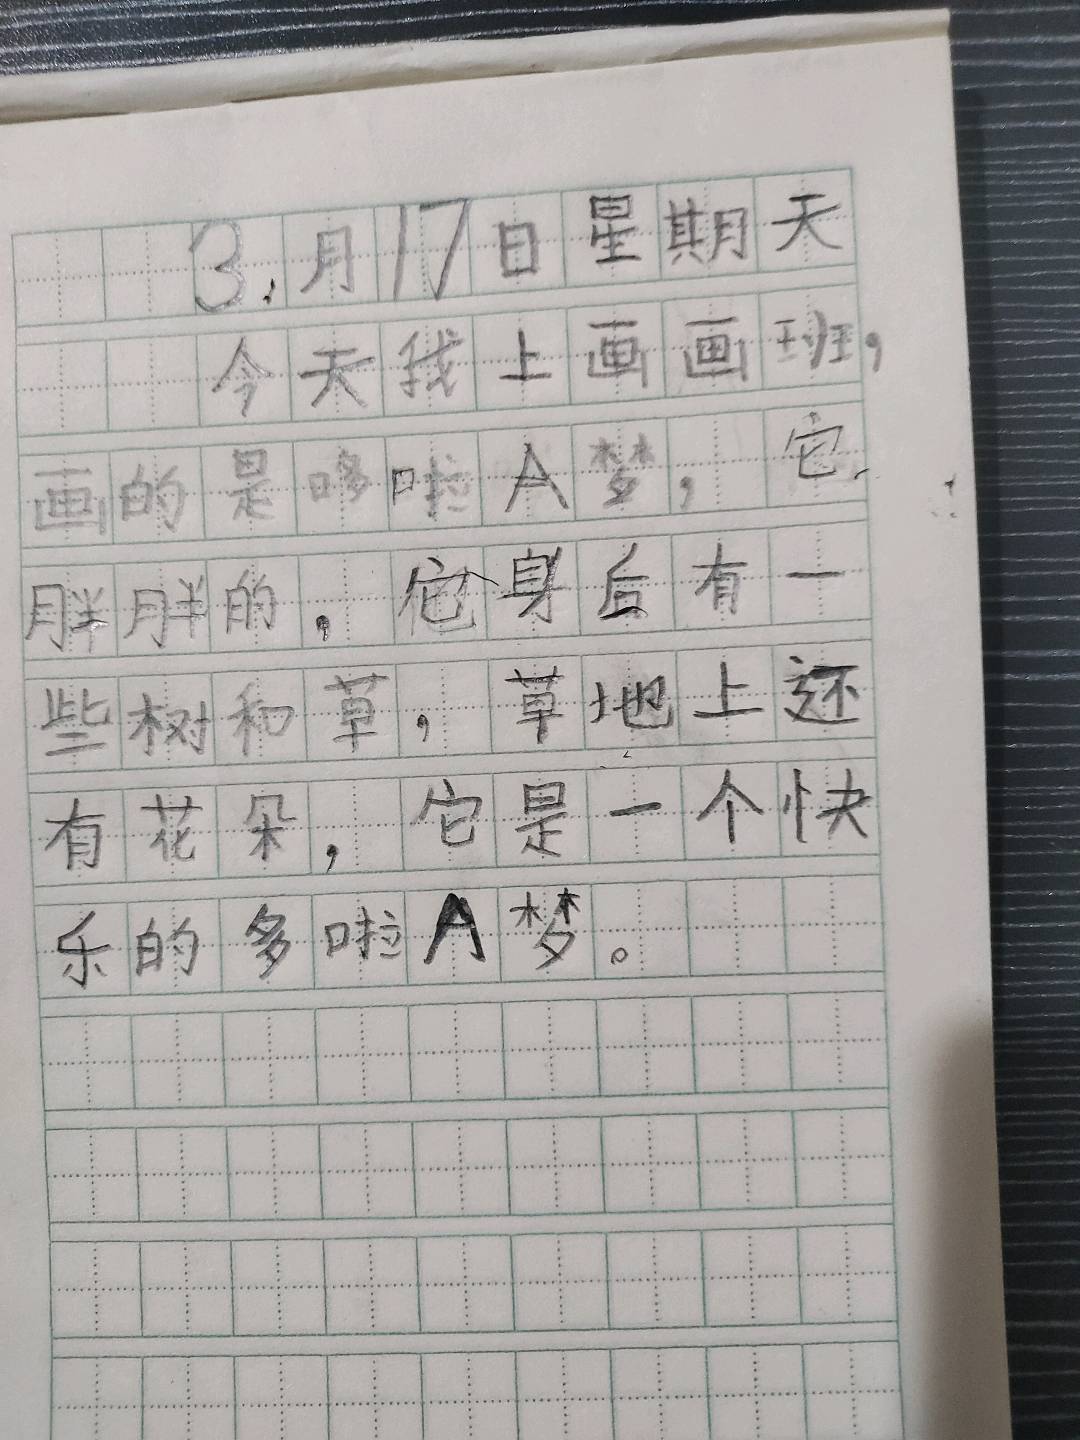 3月17日星期天
今天我上画画班，
画的是哆啦A梦，它
胖胖的，它身后有一
些树和草，草地上还
有花朵，它是一个快
乐的多啦A梦。